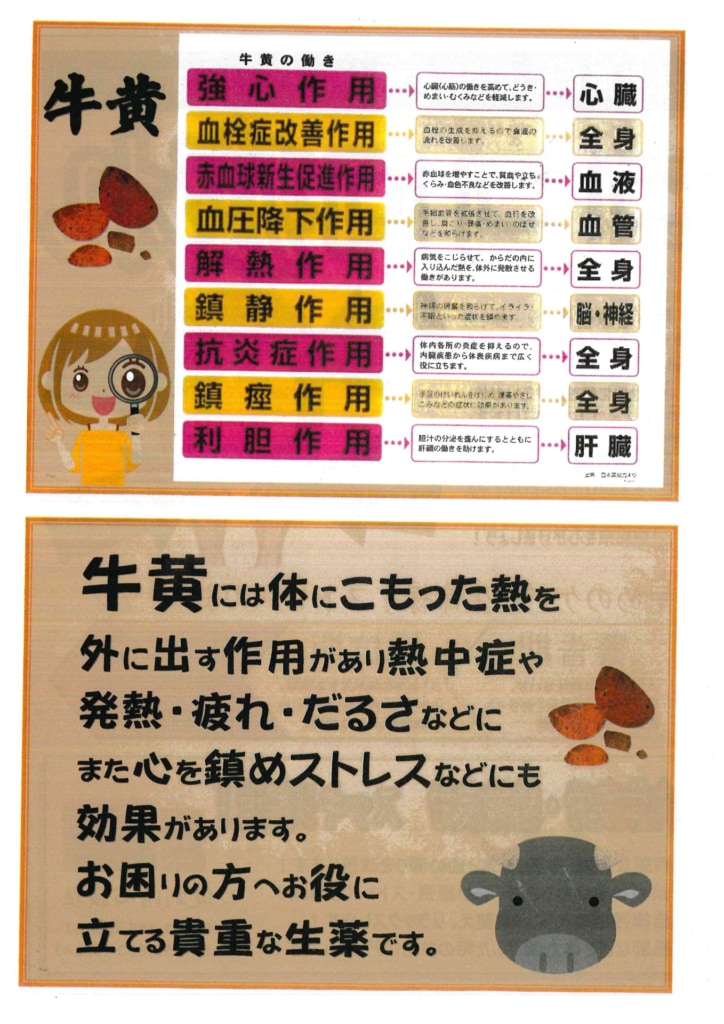 牛黄
牛黄の働き
強心作用
心臓(心筋)の働きを高めて、どうき・
めまい・むくみなどを軽減します。
心臓
血栓症改善作用
血栓の生成を抑えるので血液の
流れを改善します。
全身
赤血球新生促進作用
赤血球を増やすことで、貧血や立ち
くらみ・血色不良などを改善します。
血液
血圧降下作用
毛細血管を拡張させて、血行を改
善し、肩こり・頭痛・めまい・のぼせ
などを和らげます。
血管
解熱作用
病気をこじらせて、からだの内に
入り込んだ熱を、体外に発散させる
働きがあります。
全身
鎮静作用
神経の興奮を和らげて、イライラ・
不眠といった症状を鎮めます。
脳・神経
抗炎症作用
体内各所の炎症を抑えるので、
内臓疾患から体表疾病まで広く
役に立ちます。
全身
鎮痙作用
手足のけいれんをはじめ、腹痛やさし
こみなどの症状に効果があります。
全身
利胆作用
胆汁の分泌を盛んにするとともに
肝臓の働きを助けます。
肝臓
牛黄には体にこもった熱を
外に出す作用があり熱中症や
発熱・疲れ・だるさなどに
また心を鎮めストレスなどにも
効果があります。
お困りの方へお役に
立てる貴重な生薬です。